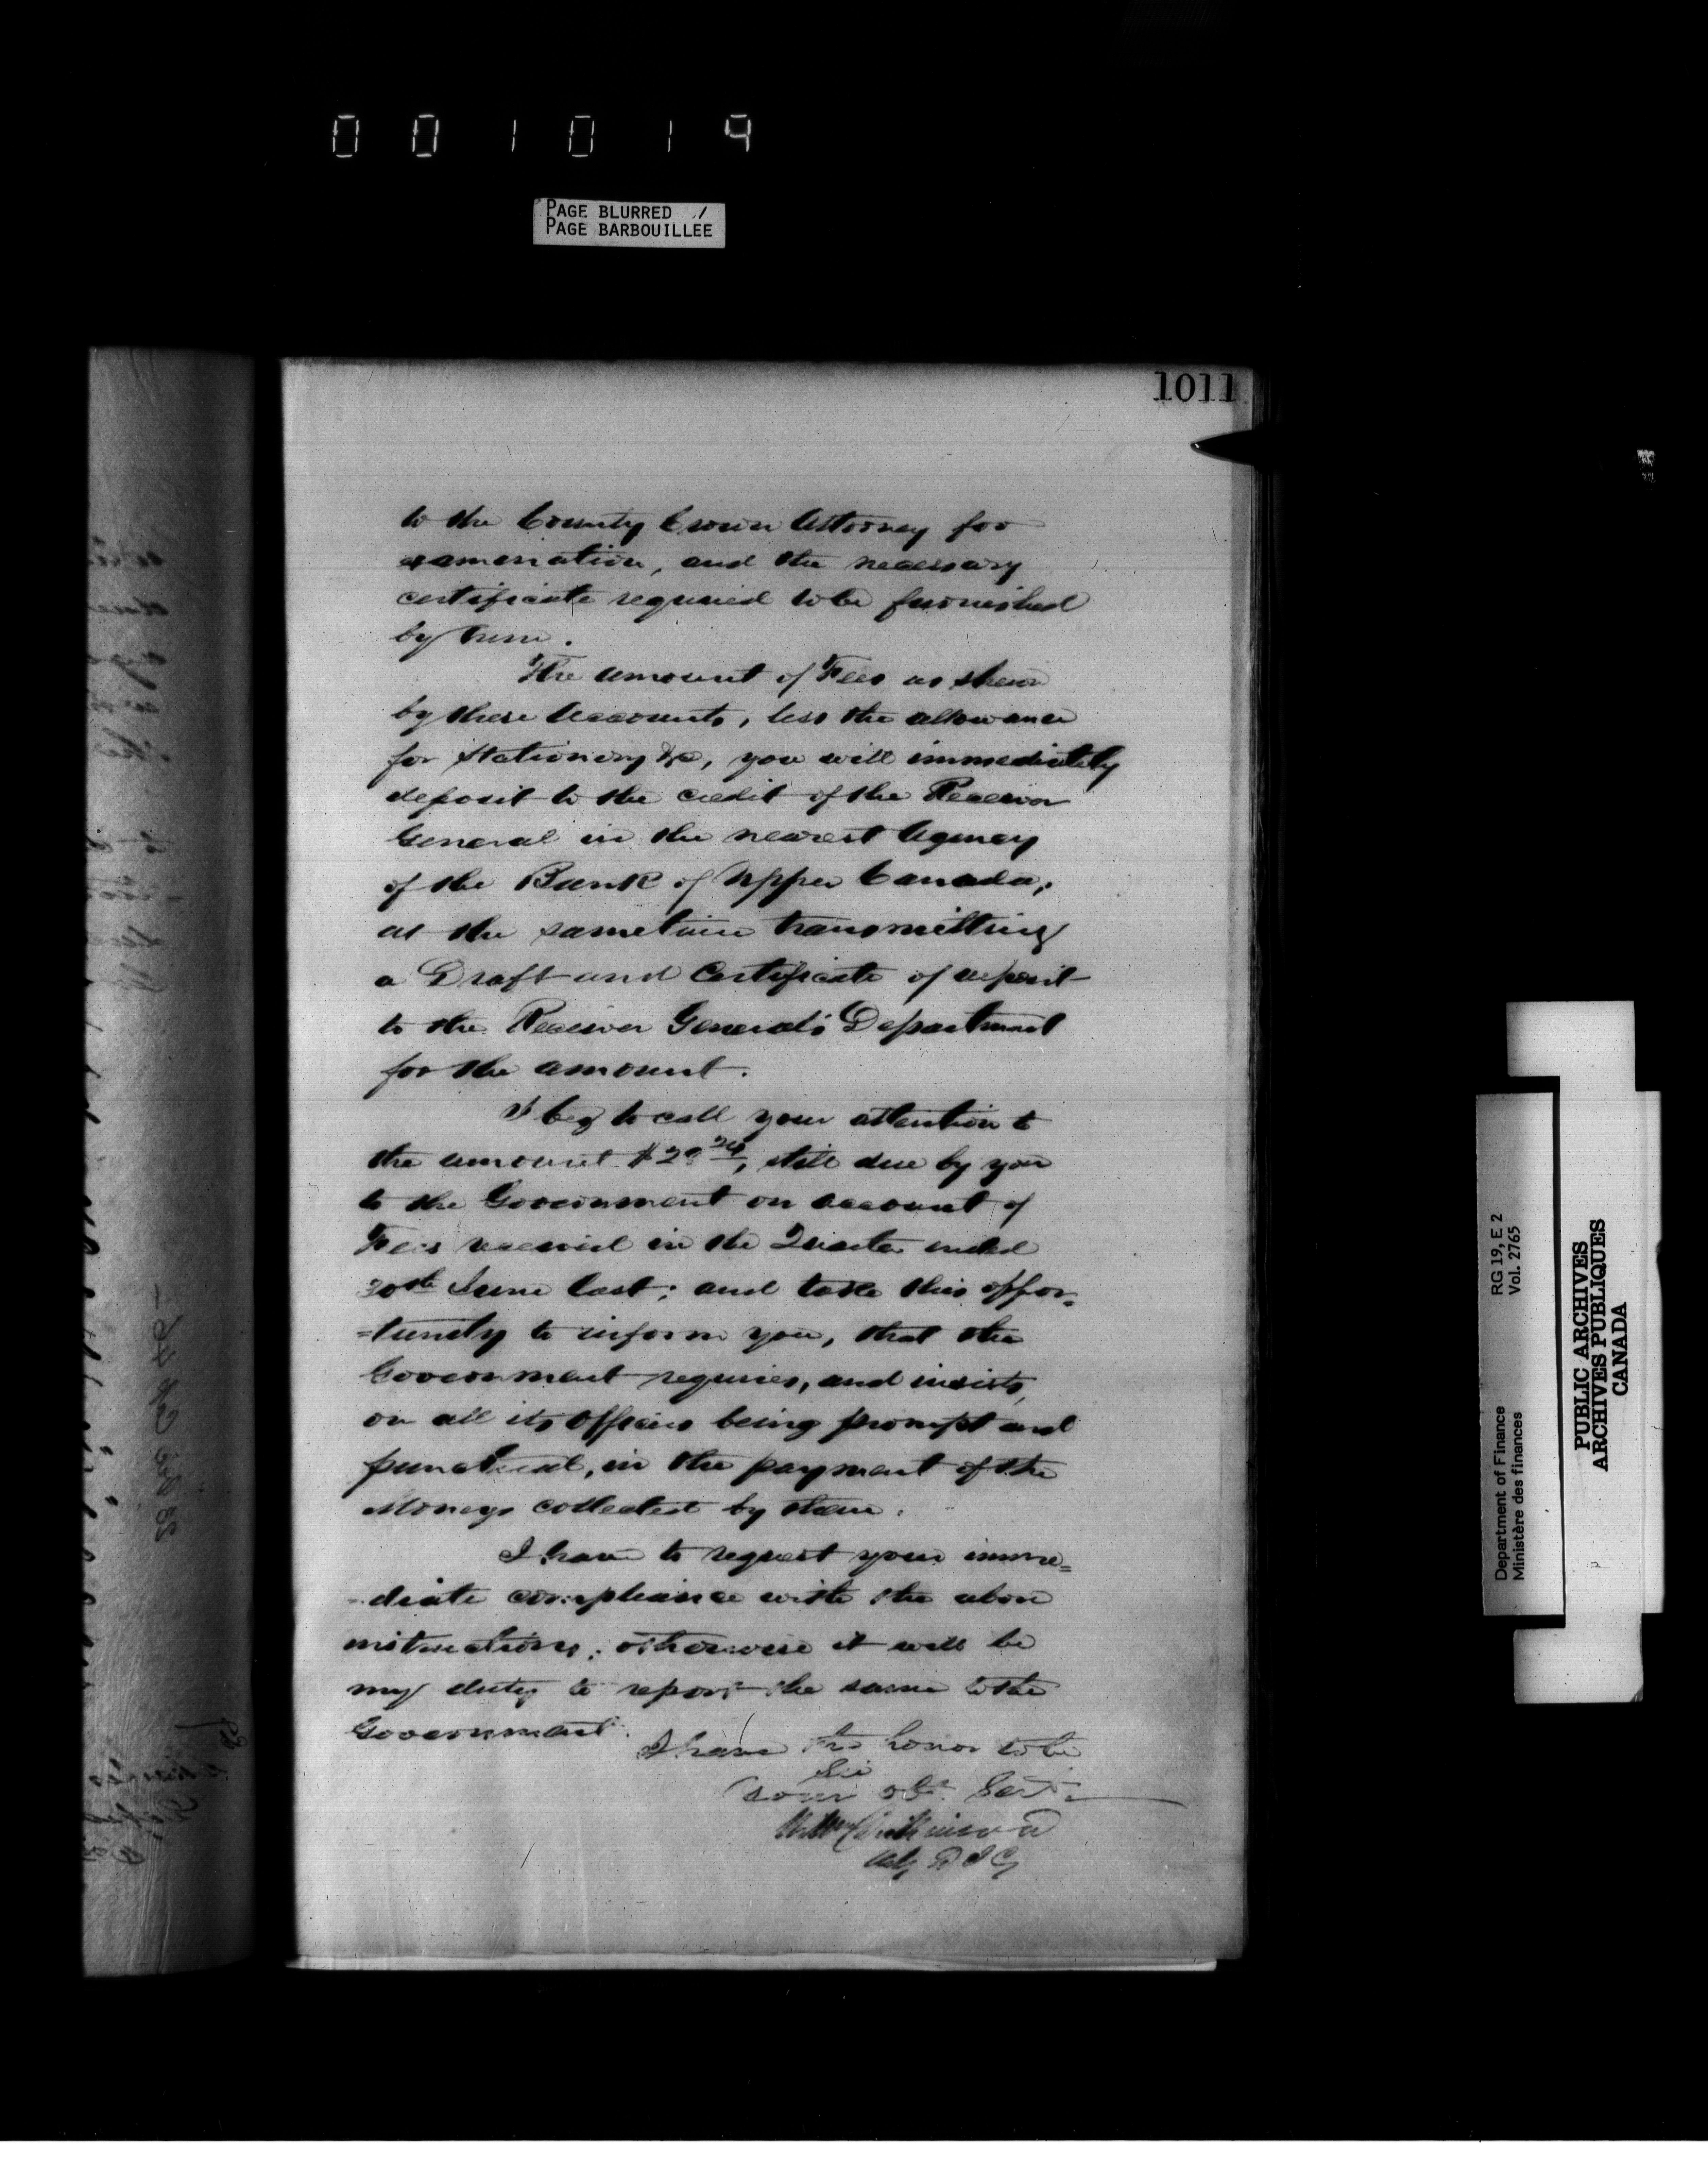 001019
PAGE BLURRED
PAGE BARBOUILLÉE
1011
to the County Crown Attorney for
examination, and the necessary
certificate required to be furnished
by him.
The amount of Fees as shewn
by these Accounts, less the allowance
for Stationery &c, you will immediately
deposit to the credit of the Receiver
General in the nearest Agency
of the Bank of Upper Canada,
at the same time transmitting
a Draft and Certificate of deposit
to the Receiver General's Department
for the amount.
I beg to call your attention to
the amount still due by you
to the Government on account of
Fees received in the Quarter ended
30th June last; and take this oppor=
=tunity to inform you, that the
Government requires, and insists,
on all its Officers being prompt and
punctual, in the payment of the
Moneys collected by them.
I have to request your imme=
=diate compliance with the above
instructions; otherwise it will be
my duty to report the same to the
Government.
I have the honor to be
Sir
Your obt. Servt.
Dickinson
D I G
RG 19, E 2
Vol. 2765
Department of Finance
Ministère des finances
PUBLIC ARCHIVES
ARCHIVES PUBLIQUES
CANADA